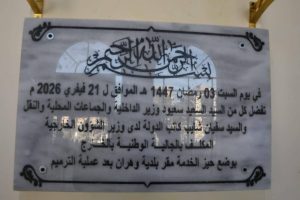 بسم الله الرحمن الرحيم
في يوم السبت 03 رمضان 1447 هـ الموافق ل 21 فيفري 2026 م
تفضل كل من السيد السعيد سعيود وزير الداخلية والجماعات المحلية والنقل
والسيد سفيان شايب كاتب الدولة لدى وزير الشؤون الخارجية
المكلف بالجالية الوطنية بالخارج
بوضع حيز الخدمة مقر بلدية وهران بعد عملية الترميم